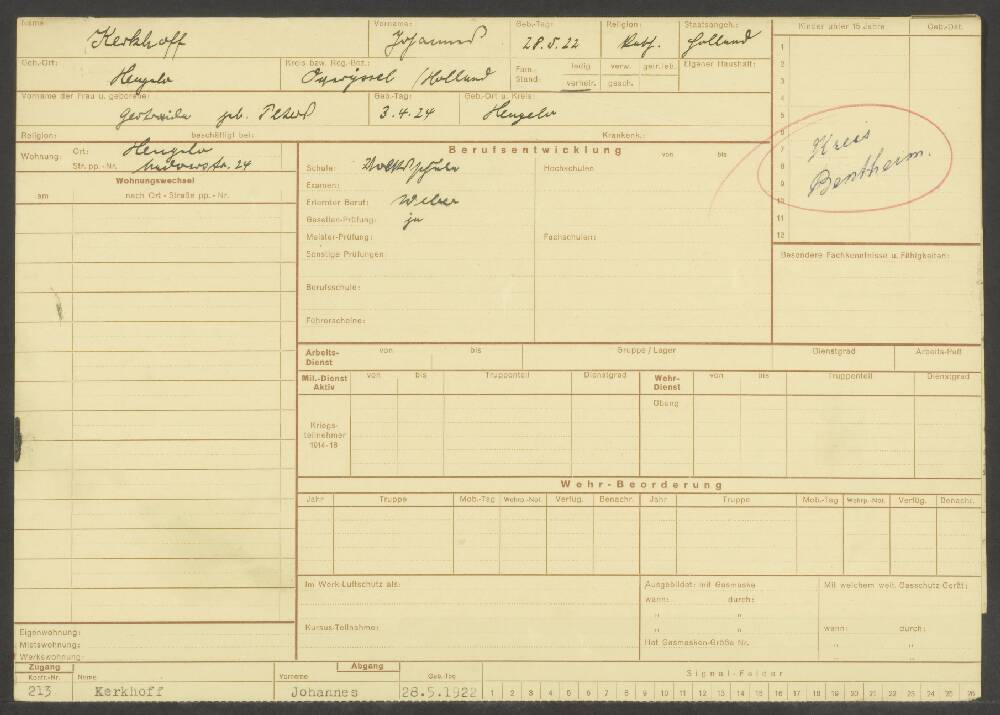 Name: Kerkhoff Vorname: Johannes Geb.-Tag: 28.5.22 Religion: kath. Staatsangeh.: Holland
Geb.-Ort: Hengelo Kreis bzw. Reg.-Bez.: Overijssel /Holland Fam.-Stand: ledig verw. getr.leb. verheir. gesch. Eigener Haushalt:
Vorname der Frau u. geborene: geb. Geb.-Tag: 3.4.24 Geb.-Ort u. Kreis: Hengelo
Religion: beschäftigt bei: Krankenk.:
Kinder unter 15 Jahre Geb.-Dat.
1
2
3
4
5
6
7
8
9
10
11
12
Kreis
Bentheim.
Wohnung: Ort: Hengelo
Str. pp.-Nr. 24
Wohnungswechsel
am nach Ort - Straße pp.-Nr.
Berufsentwicklung von bis
Schule: Volksschule Hochschulen
Examen:
Erlernter Beruf: Weber
Gesellen-Prüfung: ja
Meister-Prüfung: Fachschulen:
Sonstige Prüfungen:
Berufsschule:
Führerscheine:
Besondere Fachkenntnisse u. Fähigkeiten:
Arbeits-Dienst von bis Gruppe / Lager Dienstgrad Arbeits-Paß
Mil.-Dienst Aktiv von bis Truppenteil Dienstgrad Wehr-Dienst von bis Truppenteil Dienstgrad
Übung
Kriegs-
teilnehmer
1914-18
Wehr-Beorderung
Jahr Truppe Mob.-Tag Wehrp.-Not. Verfüg. Benachr. Jahr Truppe Mob.-Tag Wehrp.-Not. Verfüg. Benachr.
Im Werk-Luftschutz als: Ausgebildet: mit Gasmaske Mit welchem weit. Gasschutz-Gerät:
wann: durch:
" "
Kursus-Teilnahme: " " wann: durch:
Hat Gasmasken-Größe Nr. " "
"
Eigenwohnung:
Mietswohnung:
Werkswohnung:
Zugang Abgang
Kontr.-Nr. Name Vorname Geb.-Tag Signal-Felder
213 Kerkhoff Johannes 28.5.1922 1 2 3 4 5 6 7 8 9 10 11 12 13 14 15 16 17 18 19 20 21 22 23 24 25 26